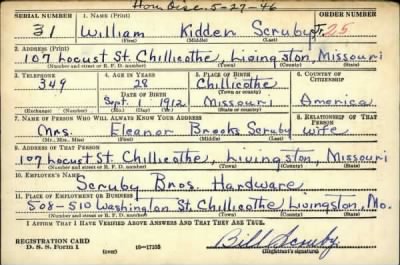 Hon Disc. 5-27-46
SERIAL NUMBER 1. NAME (Print) ORDER NUMBER
31 William Kidden Scruby Jr. 25
(First) (Middle) (Last)
2. ADDRESS (Print)
107 Locust St. Chillicothe, Livingston, Missouri
(Number and street or R. F. D. number) (Town) (County) (State)
3. TELEPHONE 4. AGE IN YEARS 5. PLACE OF BIRTH 6. COUNTRY OF CITIZENSHIP
349 28 Chillicothe
DATE OF BIRTH (Town or county)
Sept. 1 1912 Missouri America
(Exchange) (Number) (Mo.) (Day) (Yr.) (State or country)
7. NAME OF PERSON WHO WILL ALWAYS KNOW YOUR ADDRESS 8. RELATIONSHIP OF THAT PERSON
Mrs. Eleanor Brooks Scruby wife
(Mr., Mrs., Miss) (First) (Middle) (Last)
9. ADDRESS OF THAT PERSON
107 Locust St. Chillicothe, Livingston, Missouri
(Number and street or R. F. D. number) (Town) (County) (State)
10. EMPLOYER'S NAME
Scruby Bros. Hardware
11. PLACE OF EMPLOYMENT OR BUSINESS
508-510 Washington St. Chillicothe Livingston, Mo.
(Number and street or R. F. D. number) (Town) (County) (State)
I AFFIRM THAT I HAVE VERIFIED ABOVE ANSWERS AND THAT THEY ARE TRUE.
REGISTRATION CARD
D. S. S. Form 1 (over) 16-17105 Bill Scruby
(Registrant's signature)